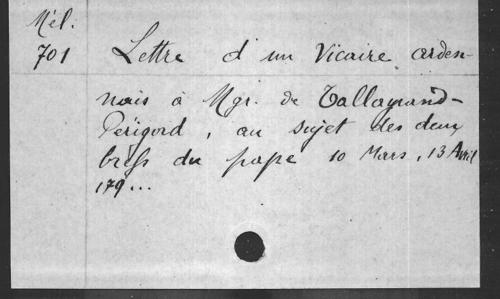 Mél.
701 Lettre d'un Vicaire arden-
nais à Mgr. de Tallayrand-
Périgord, au sujet des deux
brefs du pape 10 Mars, 13 Avril
179...